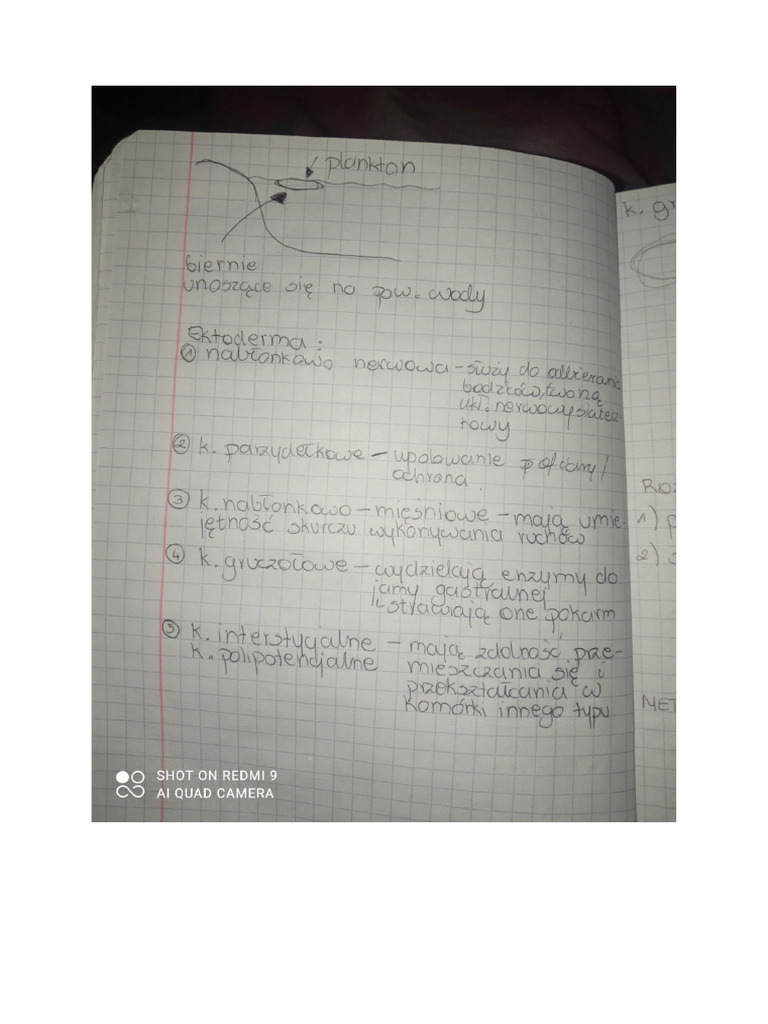 plankton
biernie
unoszące się na pow. wody
Ektoderma:
① nabłonkowo nerwowa - służy do odbierania
bodźców, tworzą
ukł. nerwowy siatecz-
kowy
② k. parzydełkowe - upolowanie pofiary/
ochrona.
③ k. nabłonkowo - mięśniowe - mają umie-
jętność skurczu wykonywania ruchów
④ k. gruczołowe - wydzielają enzymy do
jamy gastralnej
i strawiają one pokarm
⑤ k. interstycjalne - mają zdolność prze-
k. polipotencjalne mieszczania się i
przekształcania w
komórki innego typu
k. gr
ROZ
1) p
2) s
MET
SHOT ON REDMI 9
AI QUAD CAMERA